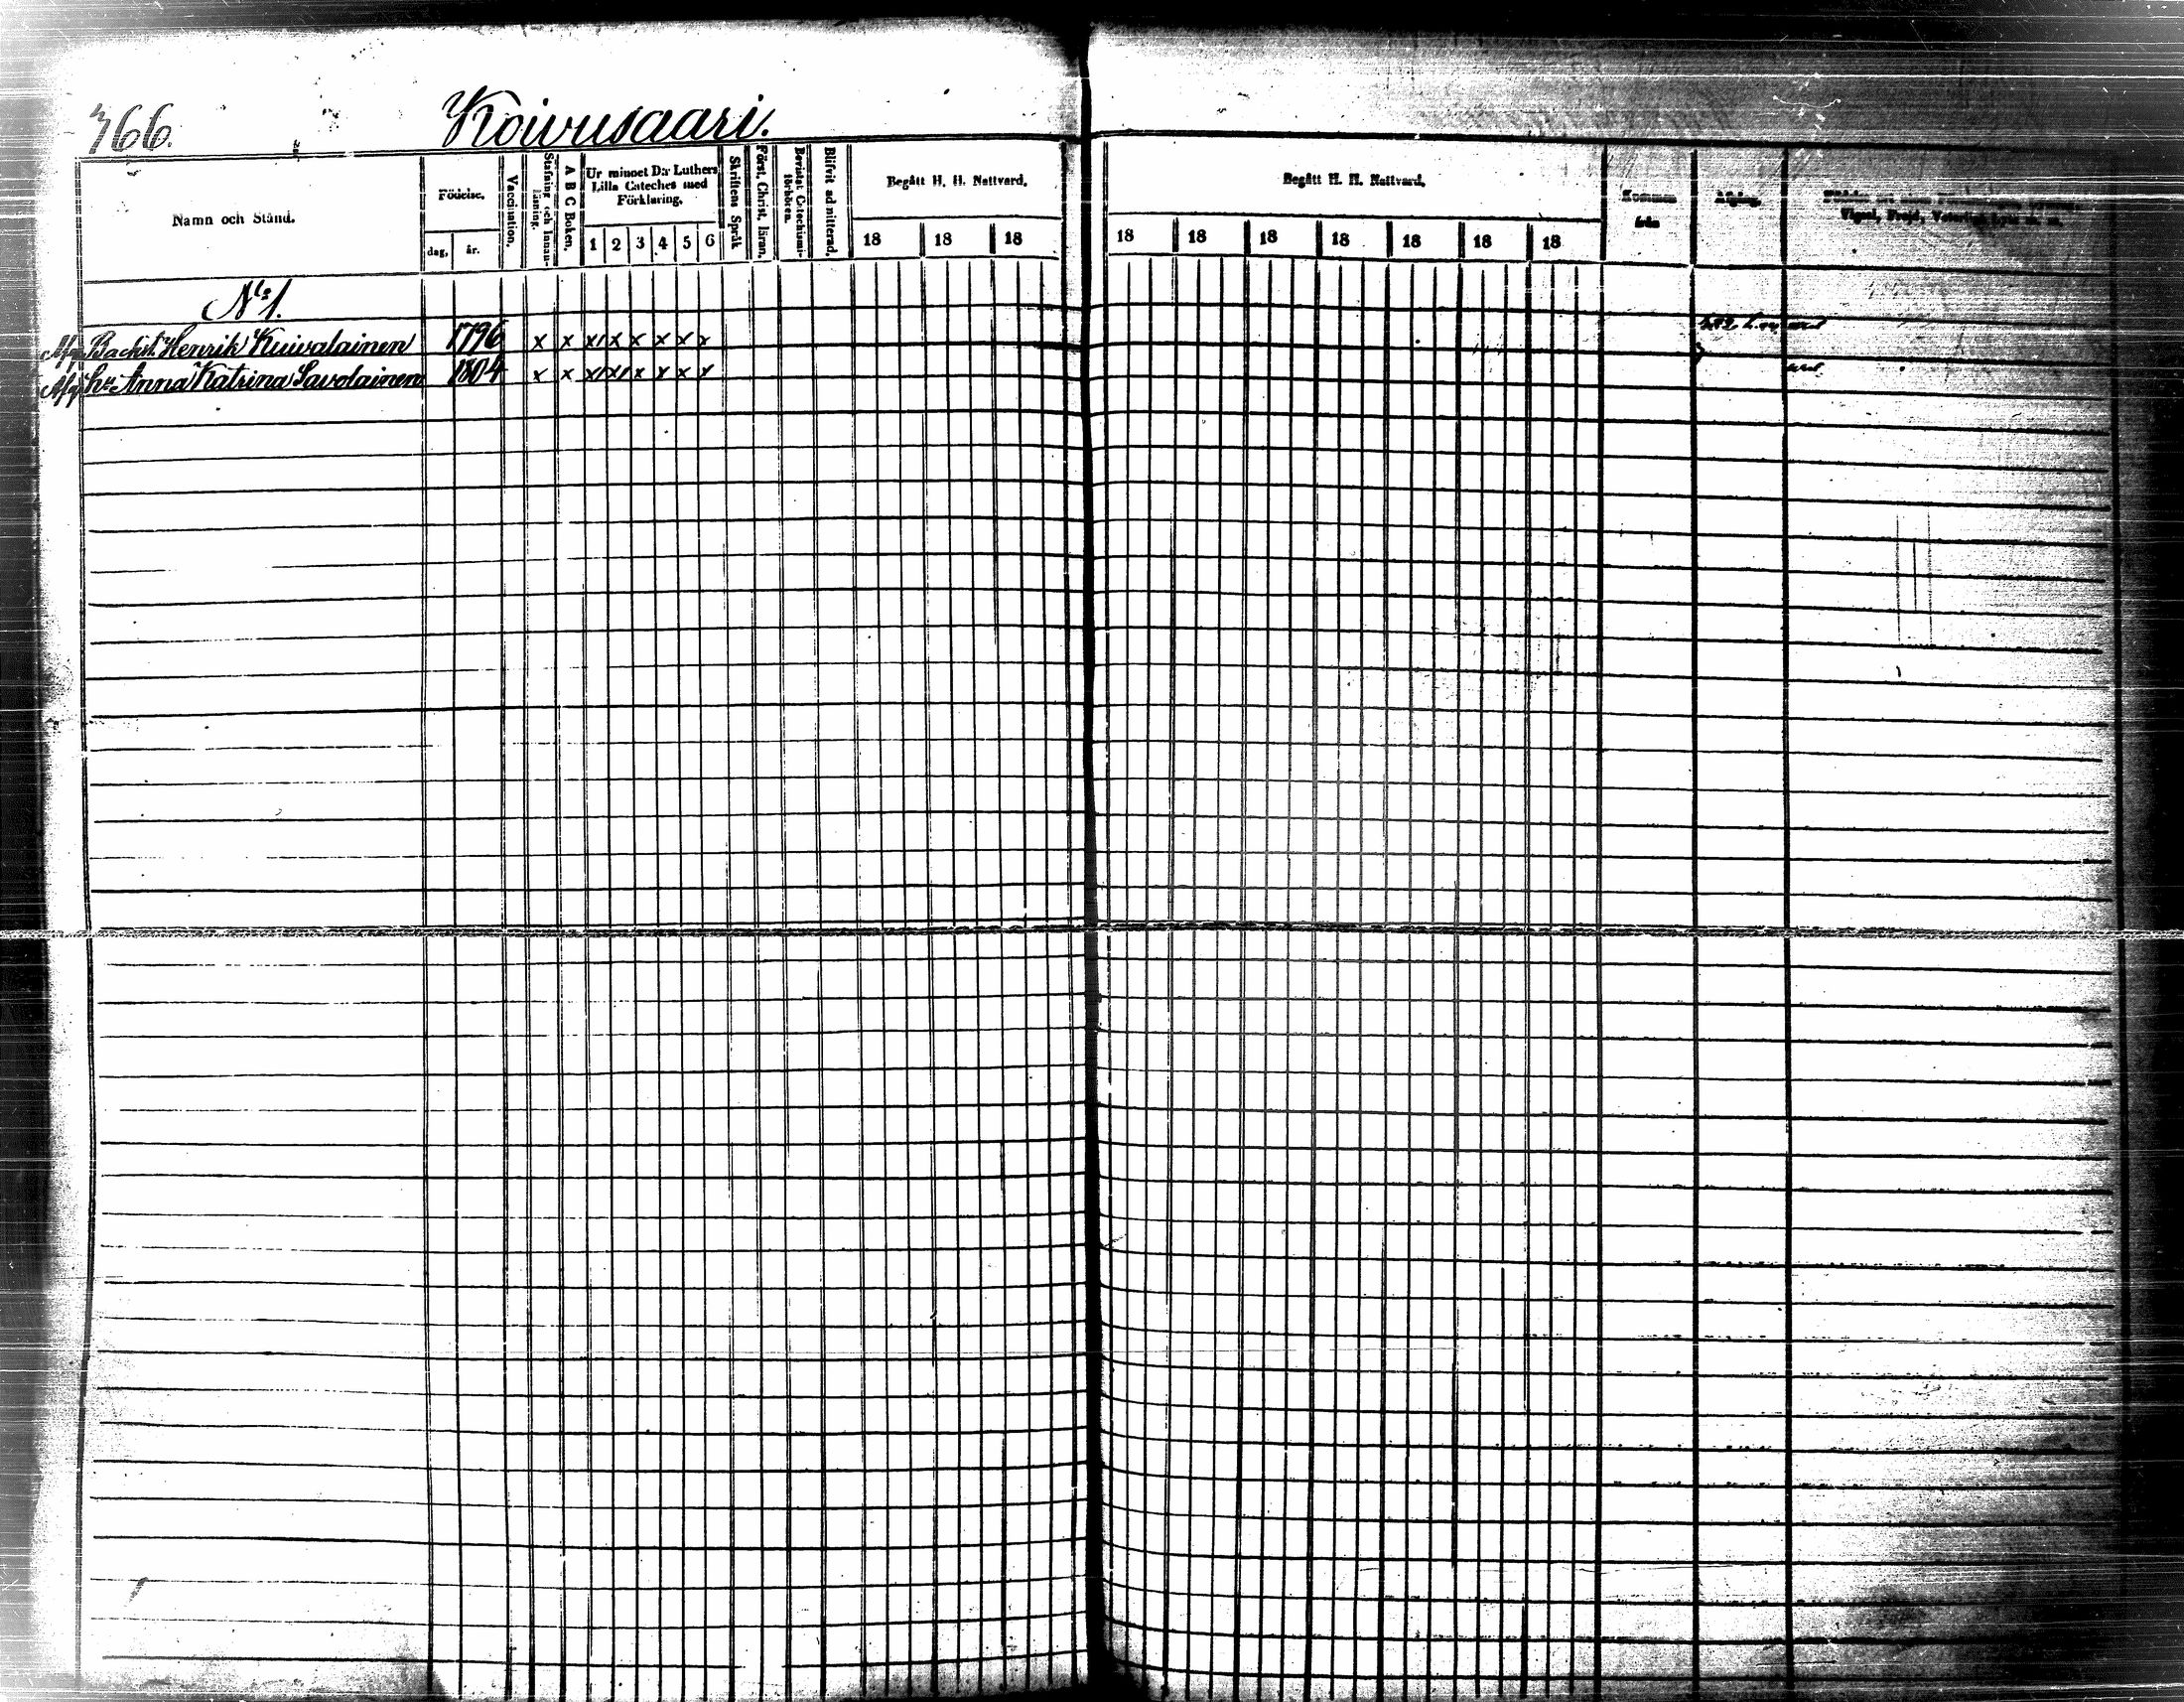 366.
Koivusaari.
Namn och Stånd.
Födelse.
dag,
år.
Vaccination,
Stafning och Innan-läsning.
A B C Boken.
Ur minnet D:r Luthers
Lilla Cateches med
Förklaring,
1 2 3 4 5 6
Skriftens Språk
Först. Christ. läran.
Bevistat Catechismi-förhören.
Blifvit admitterad.
Begått H. H. Nattvard.
18 18 18
Begått H. H. Nattvard.
18 18 18 18 18 18 18
Kommen
från
Afgång.
No 1.
Backst. Henrik Kuivalainen 1796 x x x x x x x x
hr Anna Katrina Savolainen 1804 x x x x x x x x